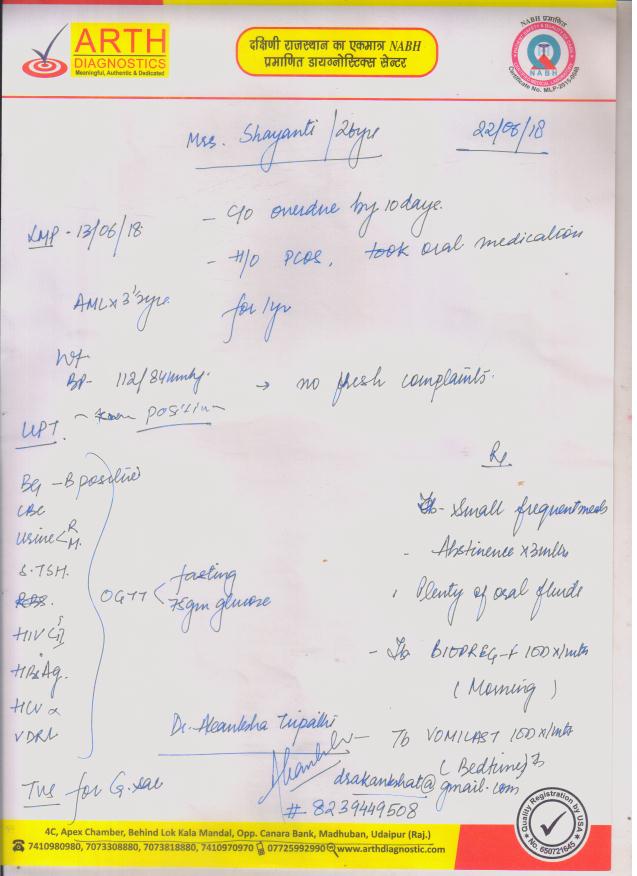 ARTH
DIAGNOSTICS
Meaningful, Authentic & Dedicated
दक्षिणी राजस्थान का एकमात्र NABH
प्रमाणित डायग्नोस्टिक्स सेन्टर
NABH प्रमाणित
NABH
Certificate No. MLP-2015-0046
Mrs. Shayanti / 26yrs
22/06/18
LMP - 13/06/18
- C/o overdue by 10 days.
- H/O PCOS, took oral medication
for 1yr
AML x 3
Wt
BP - 112/84 mmHg.
→ no fresh complaints.
UPT - positive
BG - B positive
CBC
Urine < R M.
S. TSH.
RBS.
HIV
HBsAg.
HCV
VDRL
OGTT < fasting
75gm glucose
TVS for G. sac
Rx
- Small frequent meals
- Abstinence x 3mths
- Plenty of oral fluids
- Tb BIOPREG-F 100 x 1mth
( Morning )
- Tb VOMILAST 100 x 1mth
( Bedtime )
Dr. Akanksha Tripathi
drakankshat@gmail.com
# 8239449508
4C, Apex Chamber, Behind Lok Kala Mandal, Opp. Canara Bank, Madhuban, Udaipur (Raj.)
7410980980, 7073308880, 7073818880, 7410970970 07725992990 www.arthdiagnostic.com
Quality Registration by USA
No. 650721645